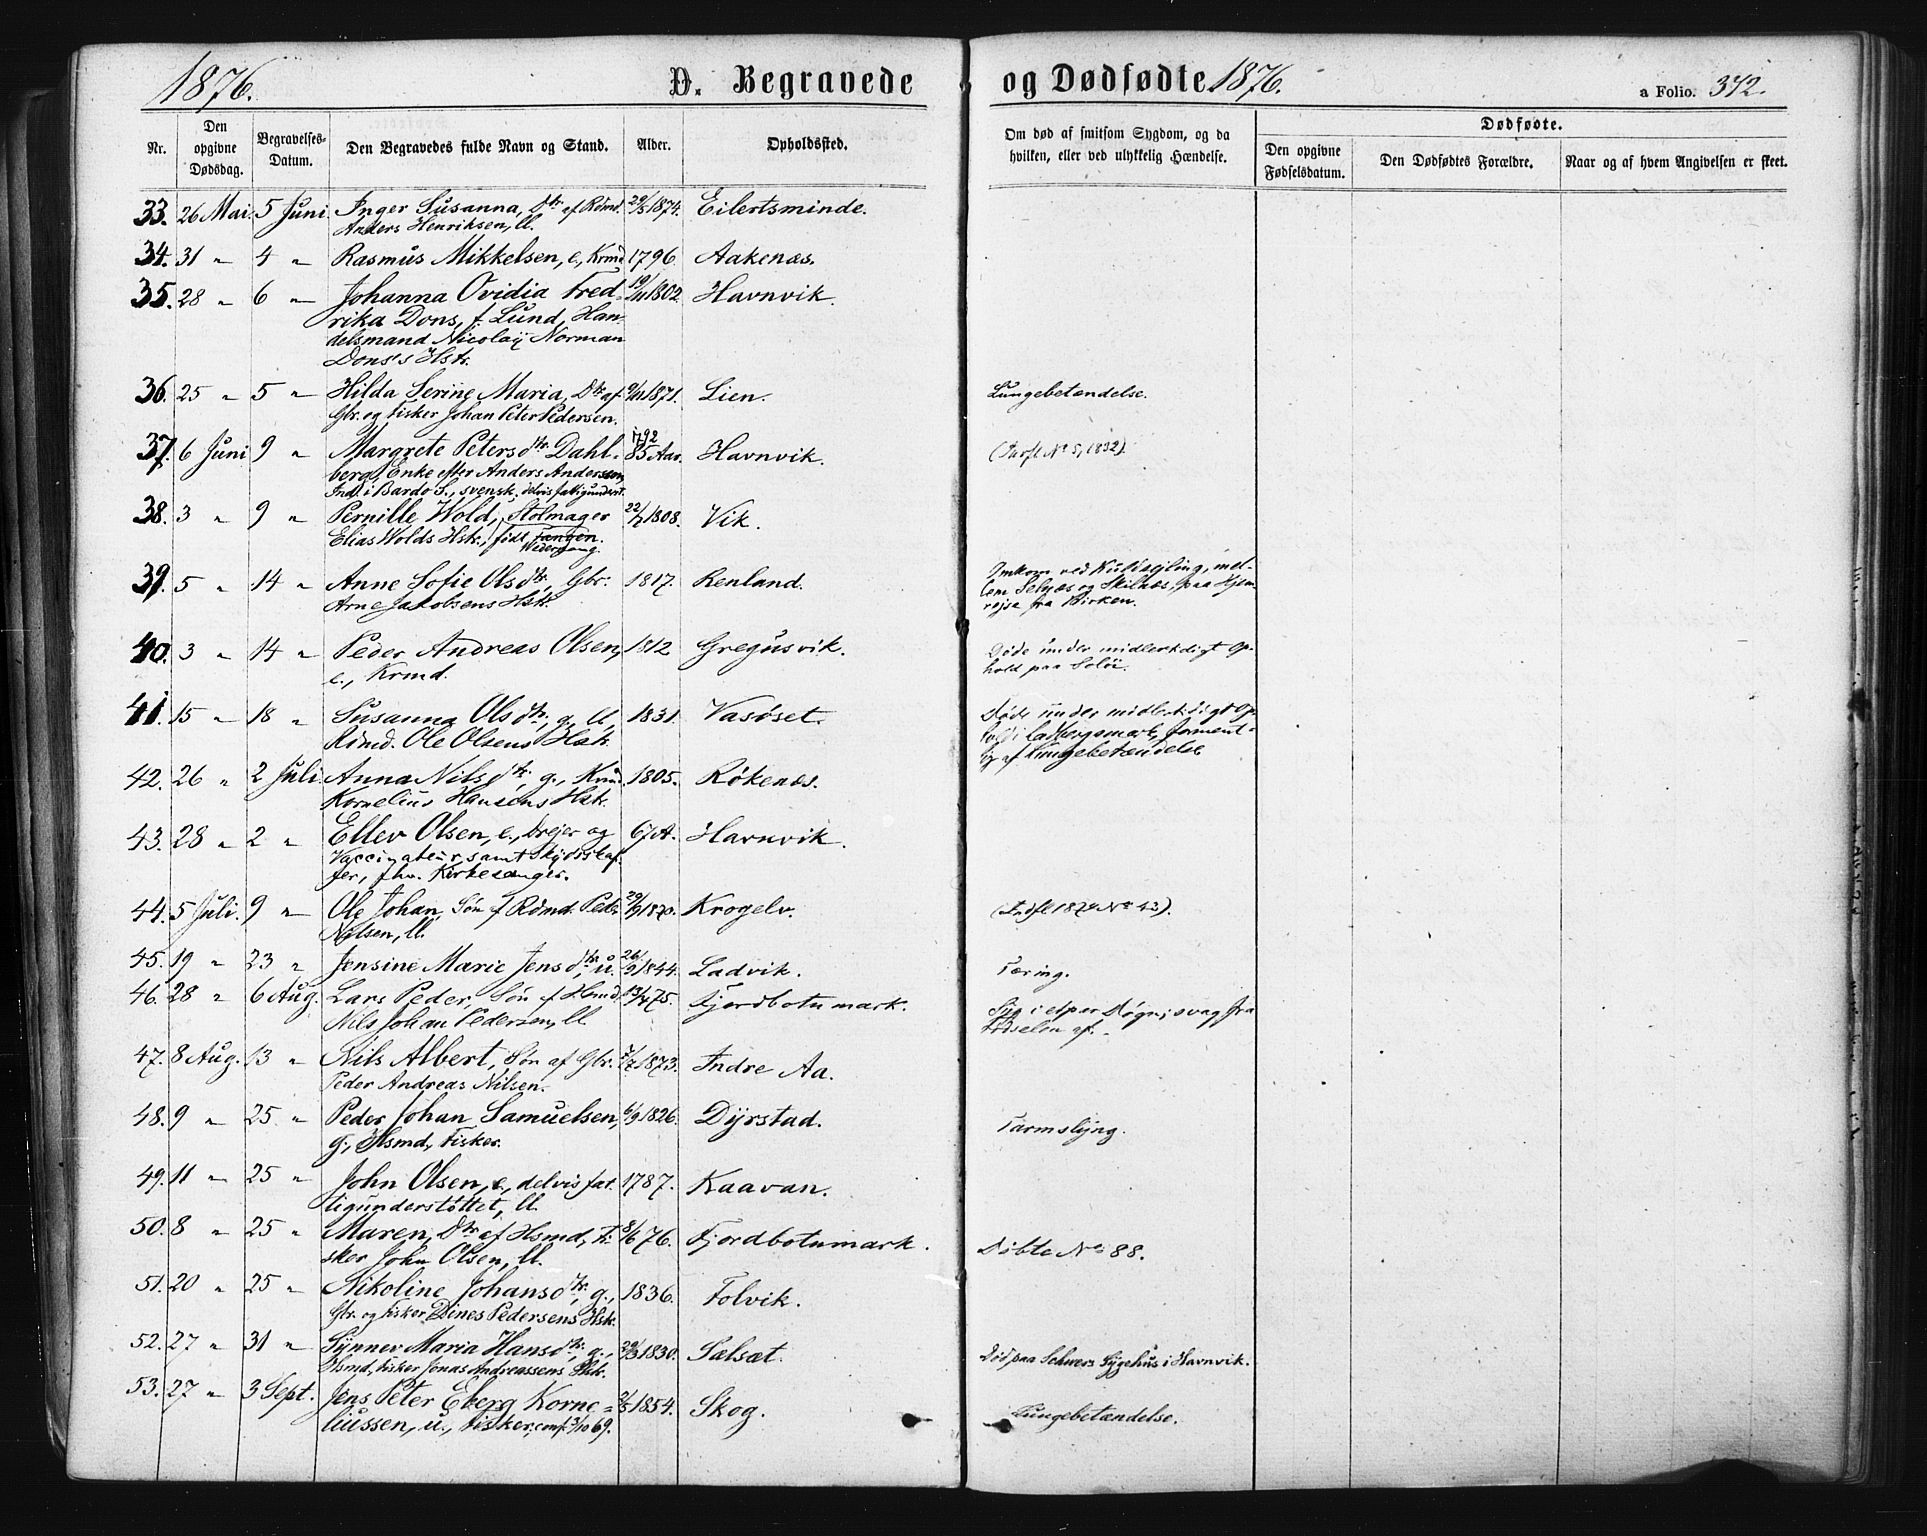 1876.
D. Begravede
og Dødfødte 1876.
a Folio. 342.
Nr.
Den opgivne Dødsdag.
Begravelses-Datum.
Den Begravedes fulde Navn og Stand.
Alder.
Opholdssted.
Om død af smitsom Sygdom, og da hvilken, eller ved ulykkelig Hændelse.
Dødfødte.
Den opgivne Fødselsdatum.
Den Dødfødtes Forældre.
Naar og af hvem Angivelsen er skeet.
33. 26 Mai 5 Juni Inger Susanna, Dtr. af Rdmd. 1874. Eilertsminde.
Anders Henriksen, ll.
34. 31 " 4 " Rasmus Mikkelsen, e., Krmd 1796. Aakenæs.
35. 28 " 6 " Johanna Ovidia Fred- 19/11 1802 Havnvik.
rika Dons, f. Lund, Han-
delsmand Nicolaij Norman
Dons's Hstr.
36. 25 " 5 " Hilda Serine Maria, Dtr. af 9/11 1871. Lien. Lungebetændelse.
Gbr. og Fisker Johan Peter Pedersen.
37. 6 Juni 9 " Margrete Petersdtr. Dahl- 1792 85 Aar. Havnvik. (Nº 5, 1832).
berg, Enke efter Anders Andersen,
Ind. i Bardo S., svensk, delvis fattigunderst.
38. 3 " 9 " Pernille Wold, Stolmager 22/7 1808. Vik.
Elias Wolds Hstr., født Tangen.
Wedervang.
39. 5 " 14 " Anne Sofie Olsdtr., Gbr. 1817. Renland. Omkom ved Kuldsejling, mel-
Arne Jakobsens Hstr. lem Selnæs og Skilnæs, paa Hjem-
rejse fra Kirken.
40. 3 " 14 " Peder Andreas Olsen, 1812 Gregusvik. Døde under midlertidigt Op-
e., Krmd. hold paa
41. 15 " 18 " Susanna Olsdtr., g., ll, 1831. Vasöset. Døde under midlertidigt Op-
Rdmd. Ole Olsens Hstr. hold i forment-
lig af Lungebetændelse
42. 26 " 2 Juli Anna Nilsdtr., g., Krmd. 1805. Røkenæs.
Kornelius Hansens Hstr.
43. 28 " 2 " Ellev Olsen, e., Drejer og 67 A. Havnvik.
Vaccinateur, samt Skydsskaf-
fer, fhv. Kirkesanger.
44. 5 Juli. 9 " Ole Johan, Søn af Rdmd. Peder 29/9 1870. Krogelv. (Indfl. 1874 Nº 43).
Nilsen, ll.
45. 19 " 23 " Jensine Marie Jensdtr., u. 26/9 1844. Ladvik. Tæring.
46. 28 " 6 Aug. Lars Peder, Søn af Hsmd. 13/4 75. Fjordbotnmark. Syg i et par Døgn; svag fra
Nils Johan Pedersen, ll. Fødselen af.
47. 8 Aug. 13 " Nils Albert, Søn af Gbr. 7/7 1873. Indre Aa.
Peder Andreas Nilsen.
48. 9 " 25 " Peder Johan Samuelsen, 6/9 1826. Dyrstad. Tarmslyng.
g., Hsmd., Fisker.
49. 11 " 25 " John Olsen, e., delvis fat- 1787. Kaavan.
tigunderstøttet, ll.
50. 8 " 25 " Maren, Dtr. af Hsmd., Fi- 8/6 76. Fjordbotnmark. Döbte Nº 88.
sker John Olsen, ll.
51. 20 " 25 " Nikoline Johansdtr., g., 1836. Tolvik.
Gbr. og Fisker Dines Pedersens Hstr.
52. 27 " 31 " Synnev Maria Hansdtr., g., 29/3 1830. Sælsæt. Död paa Schwers Sygehus i Havnvik.
Hsmd., Fisker Jonas Andreassens Hstr.
53. 27 " 3 Sept. Jens Peter Eberg Korne- 2/5 1854. Skog. Lungebetændelse.
liussen, u., Fisker, conf. 3/10 69.